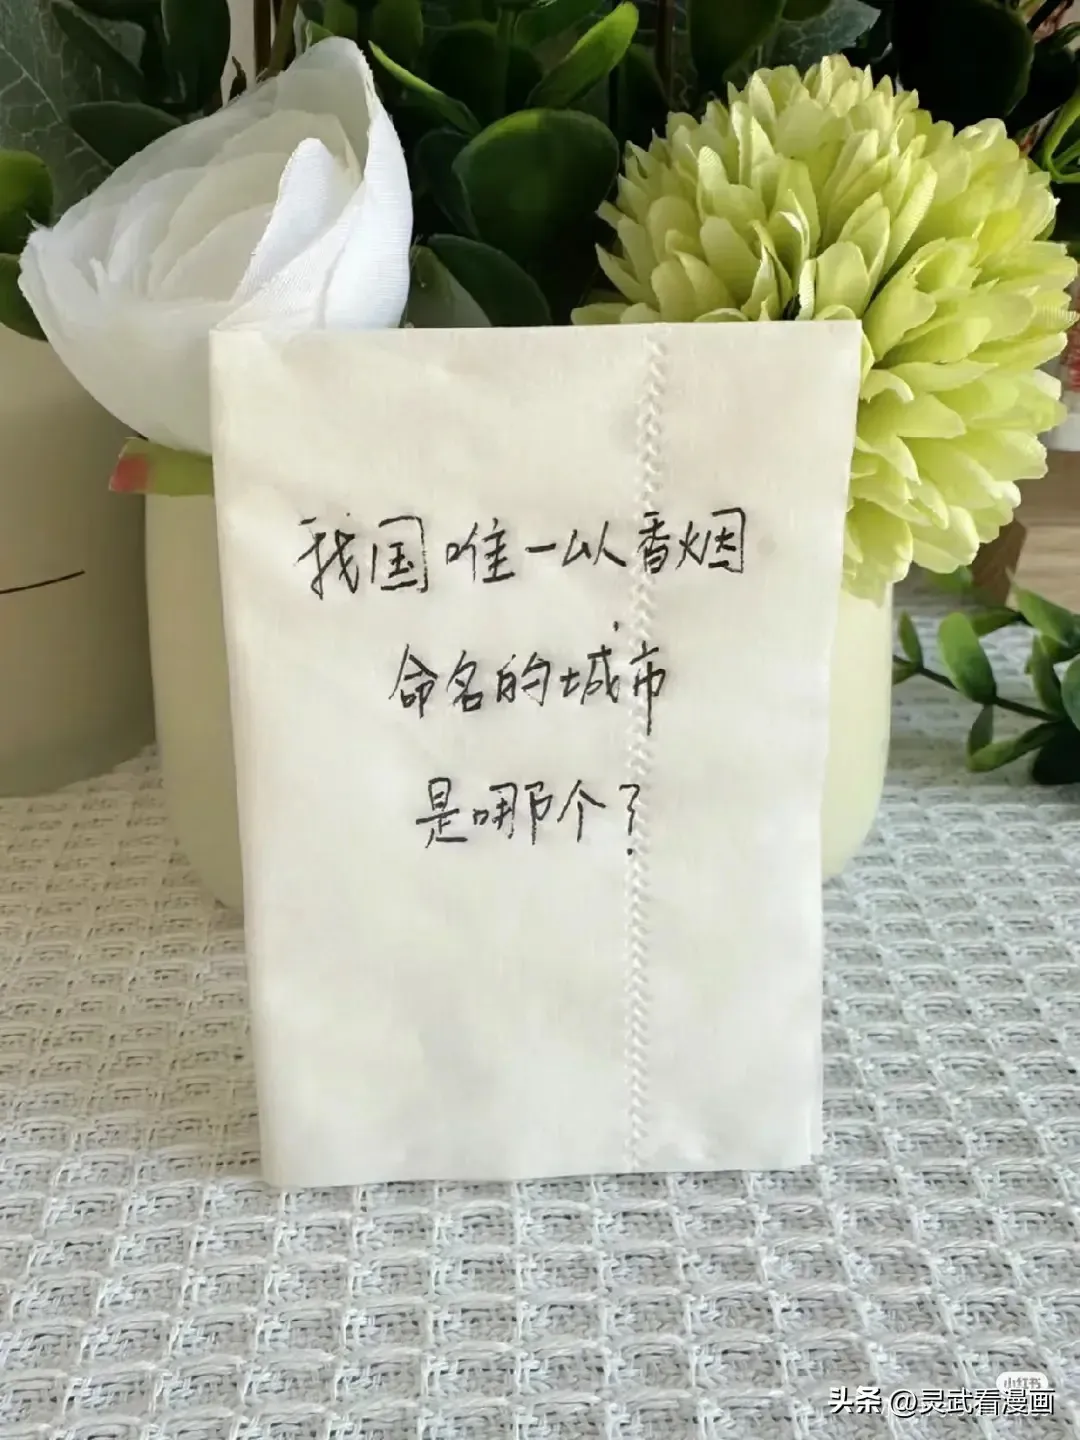 我国唯一以香烟
命名的城市
是哪个?
小红书
头条 @灵武看漫画